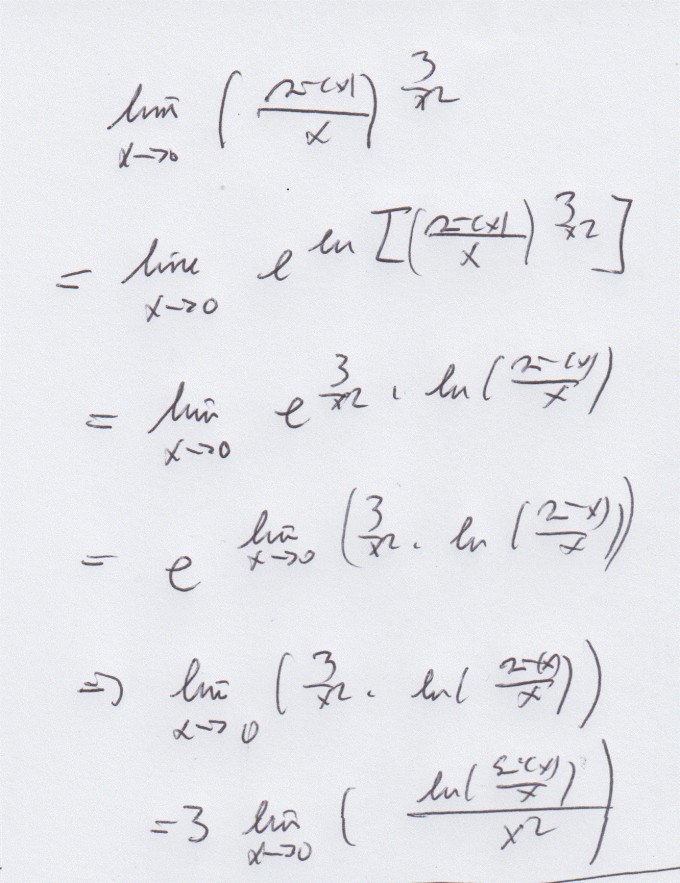 lim x→0 ( 2-(x) / x ) ^ 3/x2
= lim x→0 e ^ ln [ ( 2-(x) / x ) ^ 3/x2 ]
= lim x→0 e ^ 3/x2 · ln ( 2-(x) / x )
= e ^ lim x→0 ( 3/x2 · ln ( 2-x) / x ) )
=> lim x→0 ( 3/x2 · ln( 2-(x) / x ) )
= 3 lim x→0 ( ln( 2-(x) / x ) / x2 )